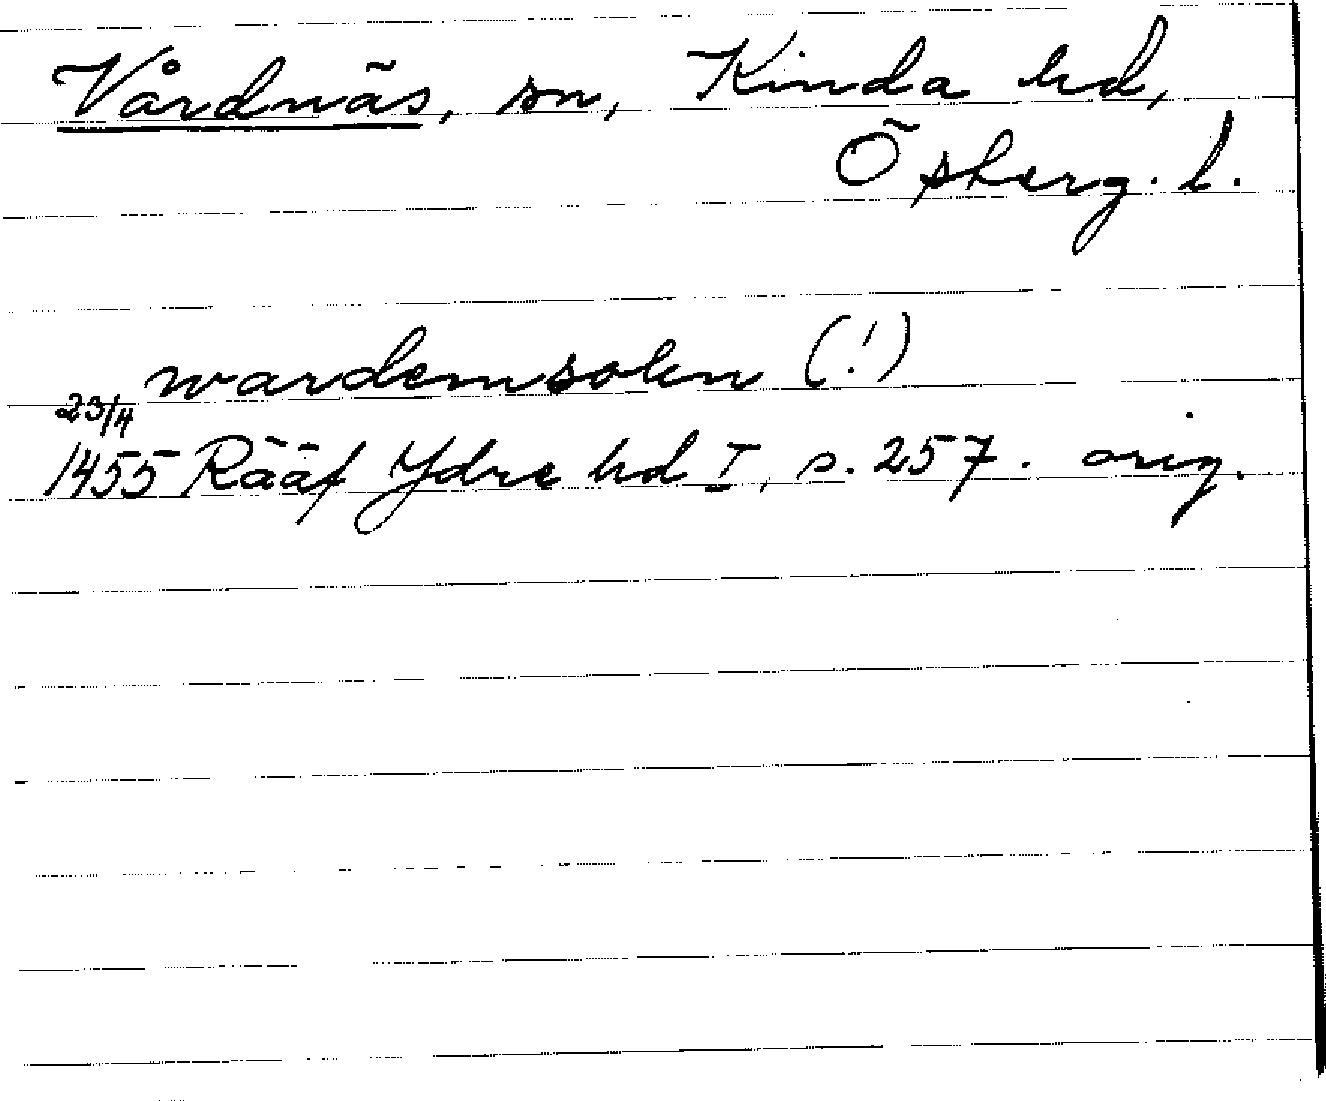 Vårdnäs, sn, Kinda hd,
Östерg. l.
wardemsokn (!)
23/4
1455 Rääf Ydre hd I, s. 257. orig.